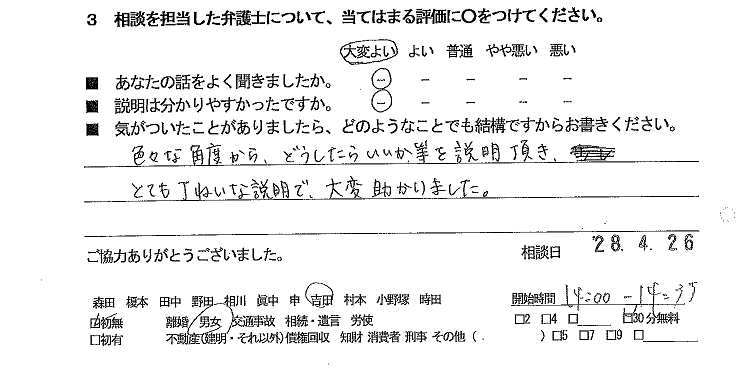 3 相談を担当した弁護士について、当てはまる評価に〇をつけてください。
大変よい よい 普通 やや悪い 悪い
■ あなたの話をよく聞きましたか。 － － － － －
■ 説明は分かりやすかったですか。 － － － － －
■ 気がついたことがありましたら、どのようなことでも結構ですからお書きください。
色々な角度から、どうしたらいいか等を説明頂き、
とても丁ねいな説明で、大変助かりました。
ご協力ありがとうございました。 相談日 '28.4.26
森田 榎本 田中 野田 相川 眞中 申 吉田 村本 小野塚 時田 開始時間 14:00 - 14:35
☑初無 離婚 男女 交通事故 相続・遺言 労使 □2 □4 □ ☑30分無料
□初有 不動産(建明・それ以外)債権回収 知財 消費者 刑事 その他( ) □5 □7 □9 □